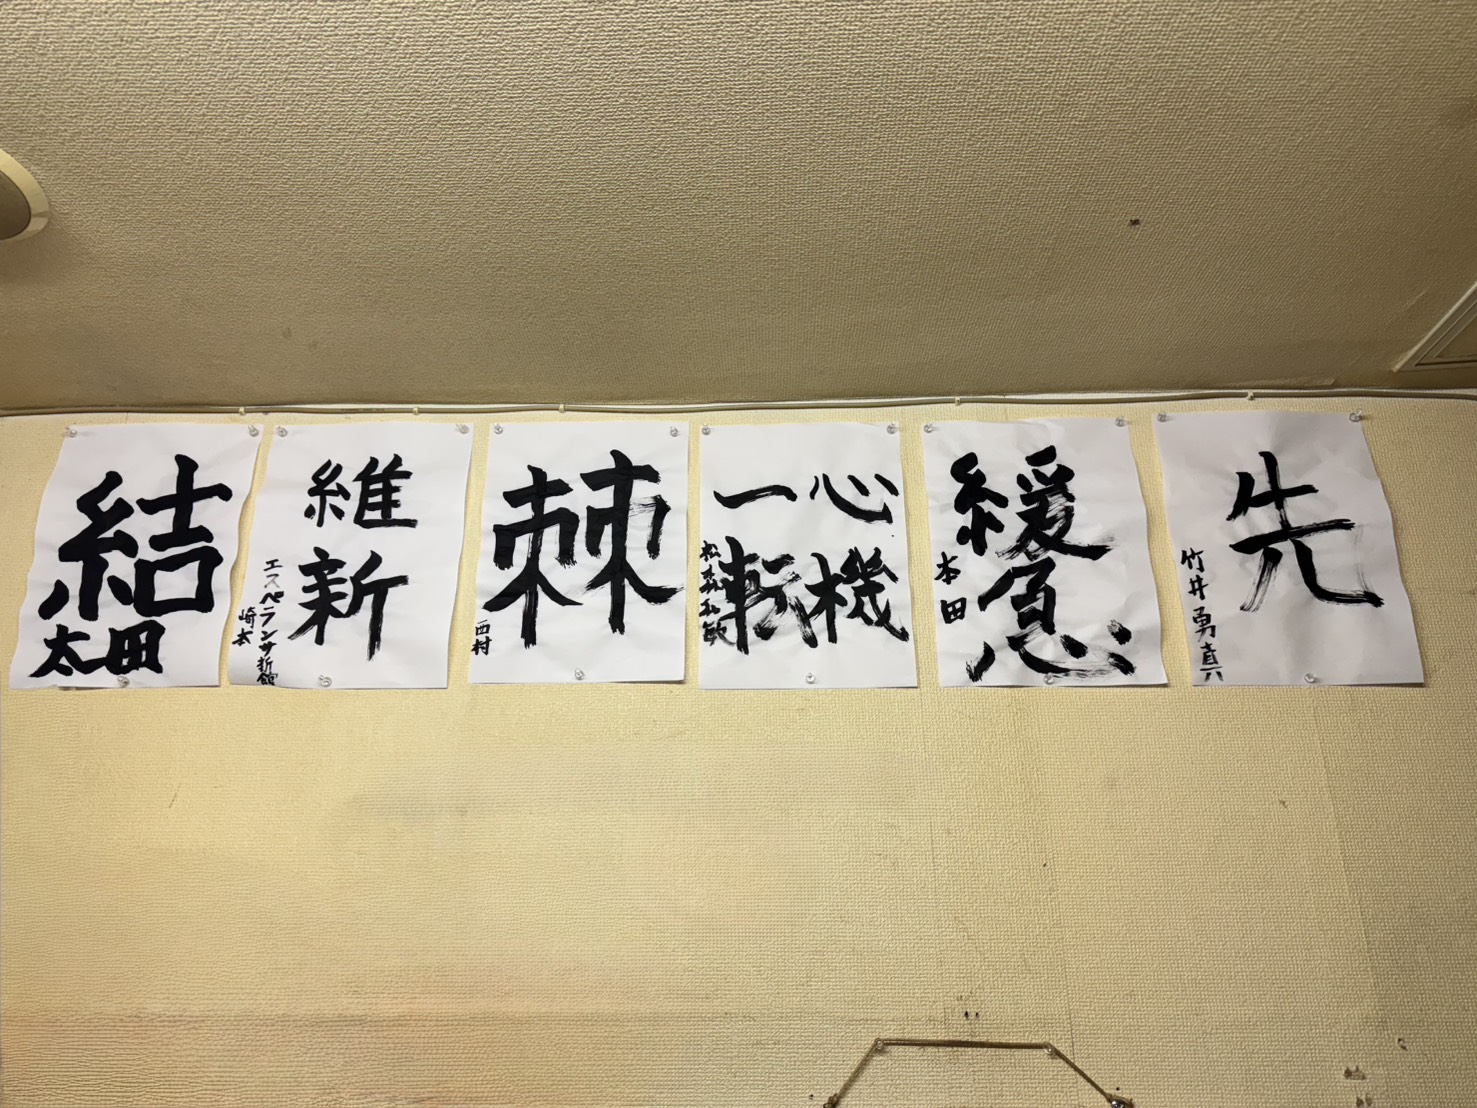 先
竹井勇真
緩急
本田
心機
一転
棘
西村
維新
エスペランサ新館
崎本
結
太田